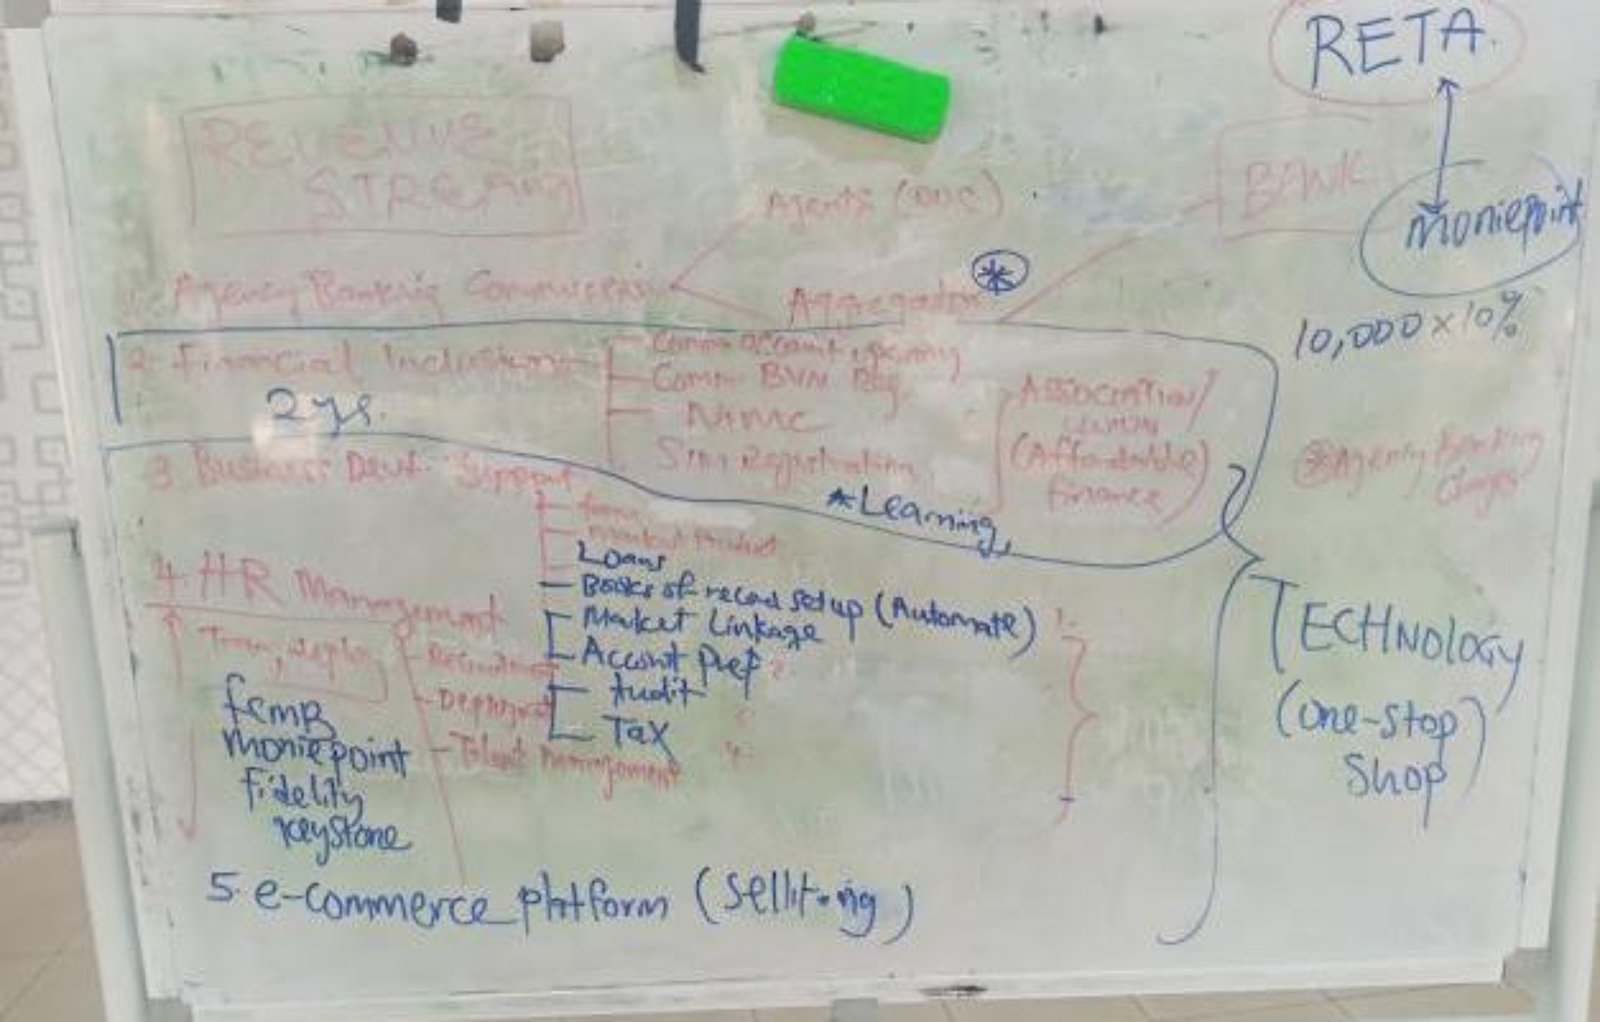 RETA
REVENUE
STREAMS
BANK
Agents
moniepoint
1. Agency Banking
Aggregator *
10,000 x 10%
2. Financial Inclusion
2 yrs.
Comm account opening
Comm BVN Reg.
NIMC
Sim Registration
Association/
(Affordable)
finance
Agency Banking
3 Business Devt. Support
*Learning,
Market
Loans
Books of record set up (Automate)
Market Linkage
Account Prep
Audit
Tax
4. HR Management
Recruitment
Talent Management
femB
moniepoint
fidelity
keystone
TECHNOLOGY
(one-stop)
Shop
5. e-commerce platform (sellit.ng)